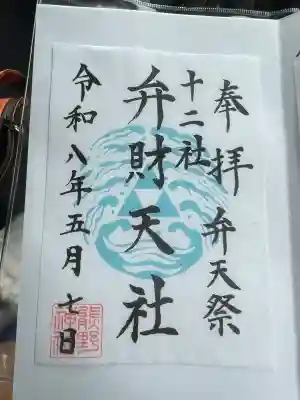 奉拝 弁天祭
十二社
弁財天社
令和八年五月七日